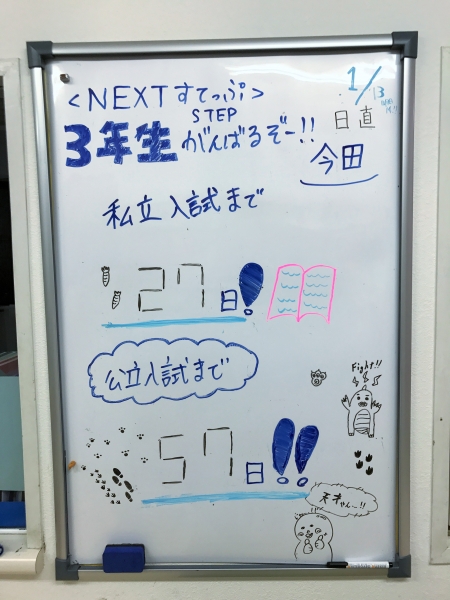 <NEXTすてっぷ>
STEP
1/13
日直
今田
3年生 がんばるぞー!!
私立入試まで
27日!
公立入試まで
Fight!!
57日!!
天才やん~!!